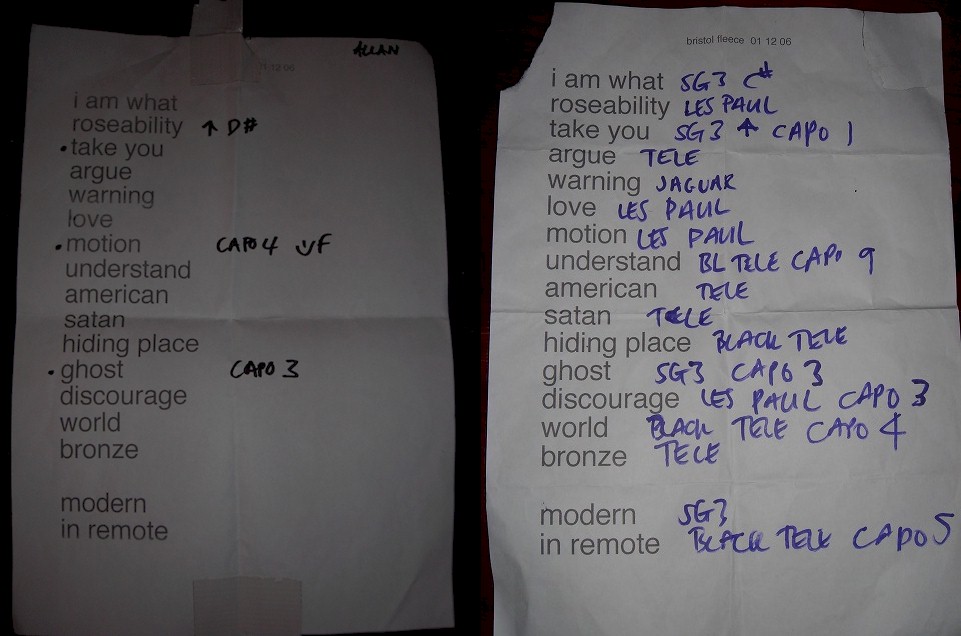 ALLAN
01 12 06
i am what
roseability ↑ D#
• take you
argue
warning
love
• motion CAPO 4
understand
american
satan
hiding place
• ghost CAPO 3
discourage
world
bronze
modern
in remote
bristol fleece 01 12 06
i am what SG3 C#
roseability LES PAUL
take you SG3 ↑ CAPO 1
argue TELE
warning JAGUAR
love LES PAUL
motion LES PAUL
understand BL TELE CAPO 9
american TELE
satan TELE
hiding place BLACK TELE
ghost SG3 CAPO 3
discourage LES PAUL CAPO 3
world BLACK TELE CAPO 4
bronze TELE
modern SG3
in remote BLACK TELE CAPO 5